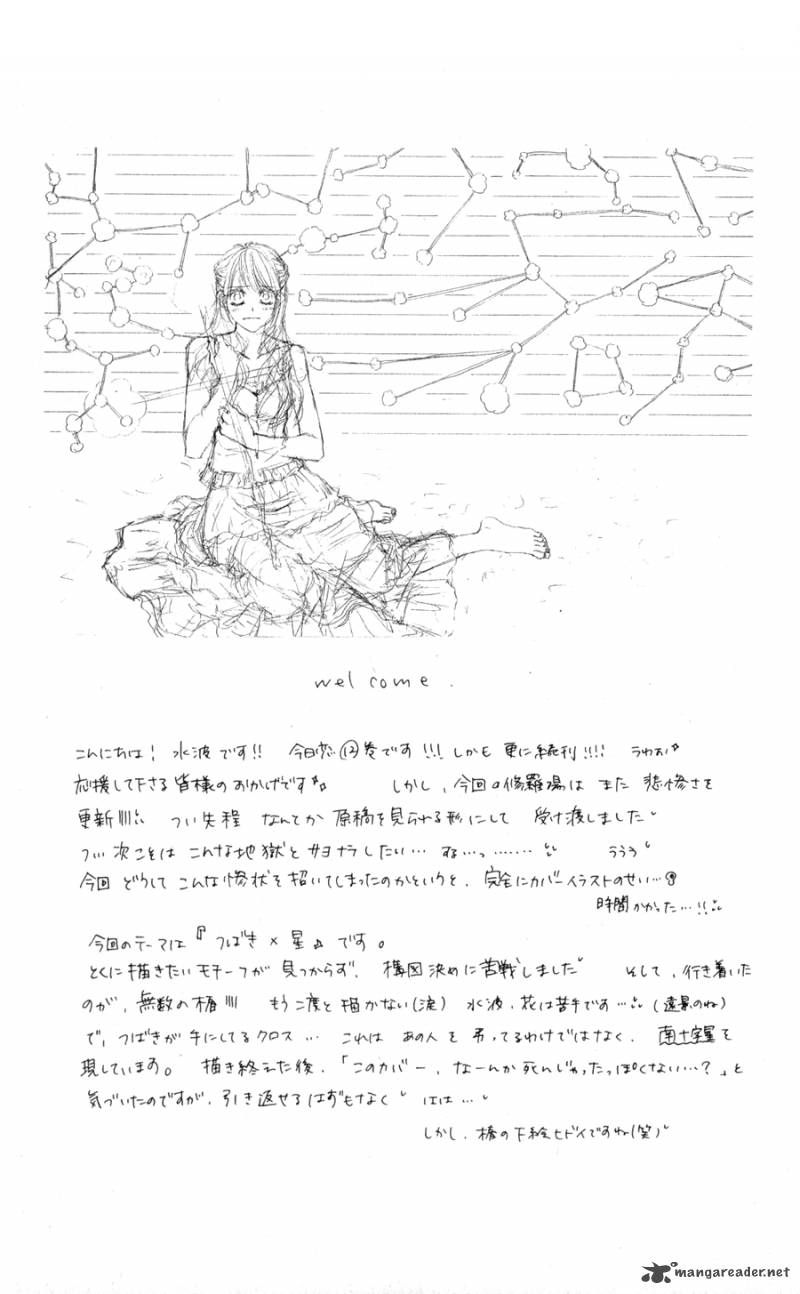 welcome.
こんにちは! 水波です!! 今日で⑫巻です!!! しかも 更に続刊!!!! うわぉ
応援して下さる皆様のおかげです しかし、今回の修羅場は また 悲惨さを
更新!!! つい先程 なんてか 原稿を見られる形にして 受け渡しました
次こそは こんな地獄と サヨナラしたい… …っ…… ううう
今回 どうして こんな惨状を招いてしまったのかというと、完全にカバーイラストのせい…
時間かかった…!!
今回のテーマは『つばき×星』です。
とくに描きたいモチーフが 見つからず、構図決めに苦戦しました そして、行き着いた
のが、無数の椿!!! もう二度と描かない(涙) 水波、花は苦手です… (遠景のね)
で、つばきが手にしてるクロス… これは あの人を 弔ってるわけではなく、南十字星を
現しています。 描き終えた後、「このカバー、なーんか死んじゃったっぽくない…?」と
気づいたのですが、引き返せるはずもなく はは…
しかし、椿の下絵ヒドイですね(笑)
mangareader.net